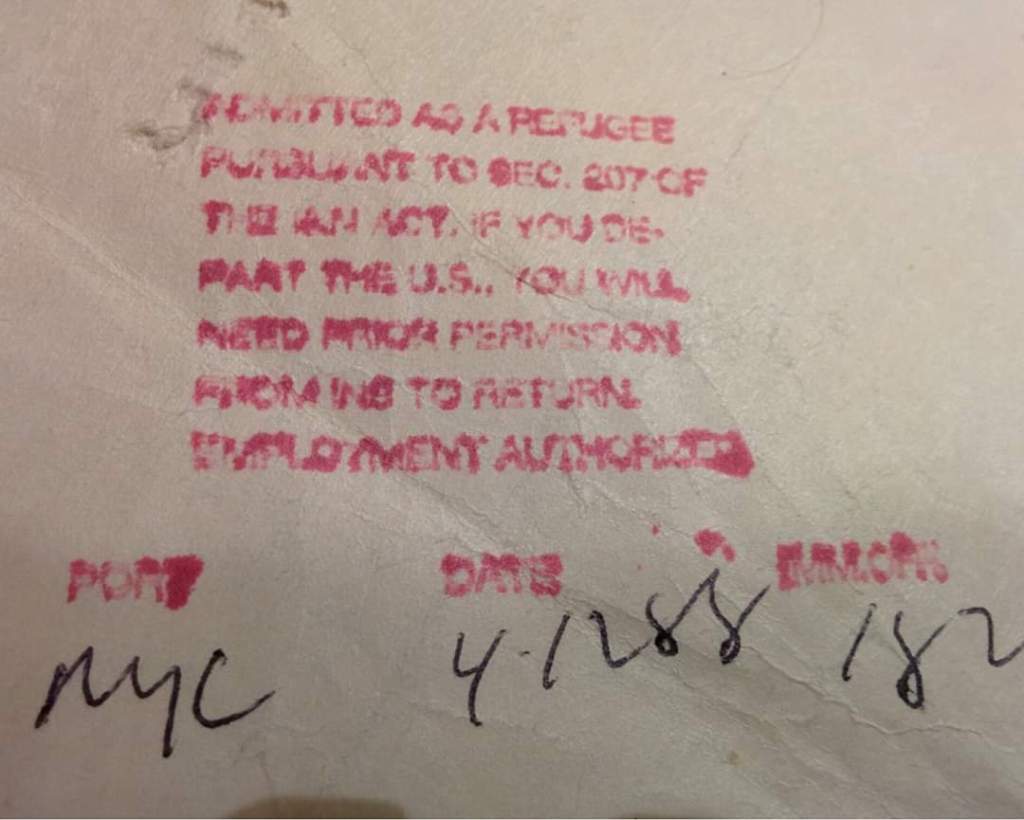 ADMITTED AS A REFUGEE
PURSUANT TO SEC. 207 OF
THE I&N ACT. IF YOU DE-
PART THE U.S., YOU WILL
NEED PRIOR PERMISSION
FROM INS TO RETURN.
EMPLOYMENT AUTHORIZED
PORT DATE IMM.OFR.
NYC 4-12 88 182